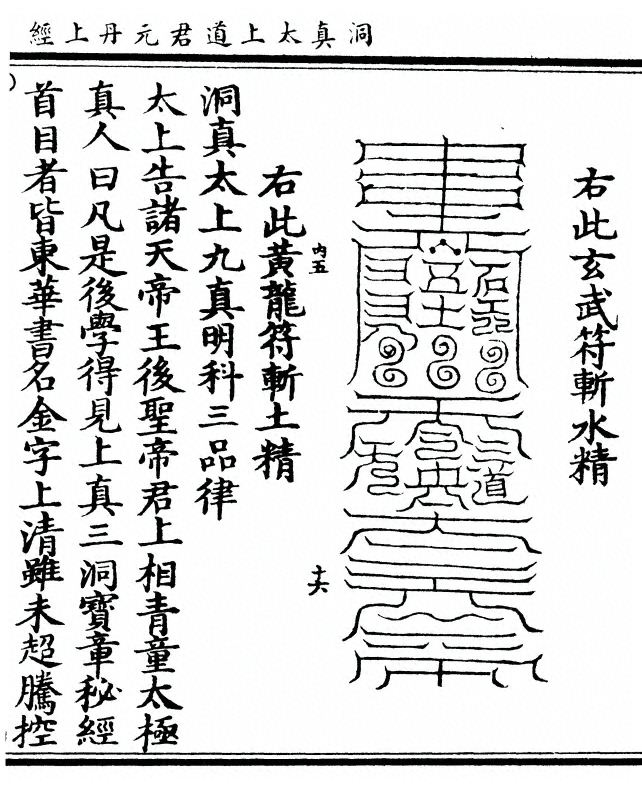 洞真太上道君元丹上經
右此玄武符斬水精
内五
十六
右此黃龍符斬土精
洞真太上九真明科三品律
太上告諸天帝王後聖帝君上相青童太極
真人曰凡是後學得見上真三洞寶章秘經
首目者皆東華書名金字上清雖未超騰控